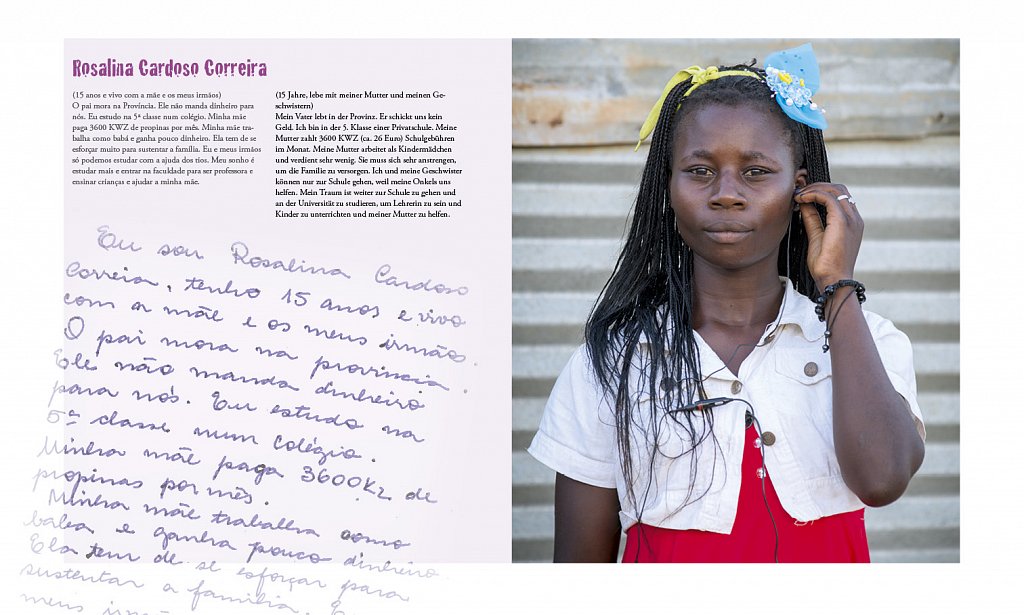 Rosalina Cardoso Correira
(15 anos e vivo com a mãe e os meus irmãos)
O pai mora na Província. Ele não manda dinheiro para
nós. Eu estudo na 5ª classe num colégio. Minha mãe
paga 3600 KWZ de propinas por mês. Minha mãe tra-
balha como babá e ganha pouco dinheiro. Ela tem de se
esforçar muito para sustentar a família. Eu e meus irmãos
só podemos estudar com a ajuda dos tios. Meu sonho é
estudar mais e entrar na faculdade para ser professora e
ensinar crianças e ajudar a minha mãe.
(15 Jahre, lebe mit meiner Mutter und meinen Ge-
schwistern)
Mein Vater lebt in der Provinz. Er schickt uns kein
Geld. Ich bin in der 5. Klasse einer Privatschule. Meine
Mutter zahlt 3600 KWZ (ca. 26 Euro) Schulgebühren
im Monat. Meine Mutter arbeitet als Kindermädchen
und verdient sehr wenig. Sie muss sich sehr anstrengen,
um die Familie zu versorgen. Ich und meine Geschwister
können nur zur Schule gehen, weil meine Onkels uns
helfen. Mein Traum ist weiter zur Schule zu gehen und
an der Universität zu studieren, um Lehrerin zu sein und
Kinder zu unterrichten und meiner Mutter zu helfen.
Eu sou Rosalina Cardoso
Correia, tenho 15 anos e vivo
com a mãe e os meus irmãos.
O pai mora na província.
Ele não manda dinheiro
para nós. Eu estudo na
5ª classe num colégio.
Minha mãe paga 3600KZ de
propinas por mês.
Minha mãe trabalha como
baba e ganha pouco dinheiro
Ela tem de se esforçar para
sustentar a família.
meus